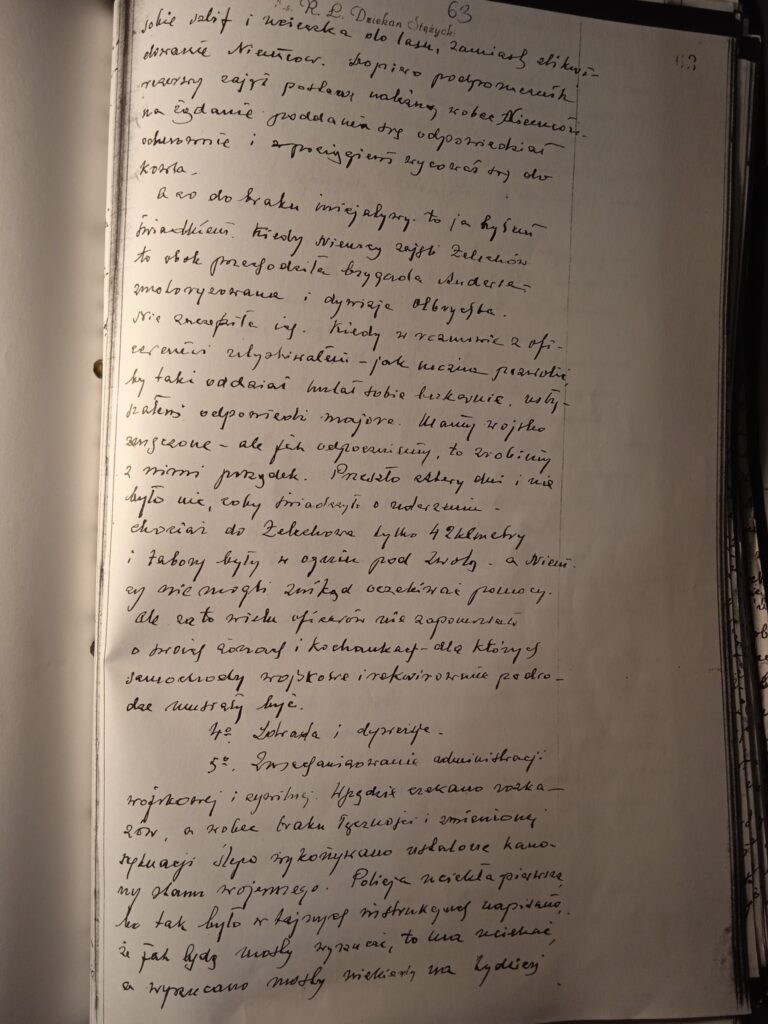 Ks. R. L. Dziekan Stężycki
63
63
sobie szlif i ucieczka do lasu, zamiast zlikwi-
dowanie Niemców. Dopiero podporucznik
rezerwy zajął postawę należną wobec Niemców-
na żądanie poddania się odpowiedział
odmownie i z pociągiem wycofał się do
Kowla.
A co do braku inicjatywy to ja byłem
świadkiem. Kiedy Niemcy zajęli Żelechów
to obok przechodziła brygada Andersa
zmotoryzowana i dywizja Olbrychta.
Nie zaczepiła ich. Kiedy w rozmowie z ofi-
cerami - jak można pozwolić,
by taki oddział hulał sobie bezkarnie, usły-
szałem odpowiedź majora. Mamy wojsko
zmęczone - ale jak odpoczniemy, to zrobimy
z nimi porządek. Przeszło cztery dni i nie
było nic, coby świadczyło o uderzeniu -
chociaż do Żelechowa tylko 42 klmetry
i tabory były w ogniu pod - a Niem-
cy nie mogli znikąd oczekiwać pomocy.
Ale za to wielu oficerów nie zapomniało
o swoich żonach i kochankach - dla których
samochody wojskowe i rekwirowanie po dro-
dze musiały być.
4º. Zdrada i dywersja -
5º. Zdezorganizowanie administracji
wojskowej i cywilnej. Wszędzie czekano rozka-
zów, a wobec braku łączności i zmienionej
sytuacji ślepo wykonywano ustalone kano-
ny stanu wojennego. Policja uciekła pierwsza,
bo tak było w tajnych instrukcjach napisane,
że jak będą mosty wyrzucać, to ma uciekać,
a wyrzucano mosty niekiedy na tydzień